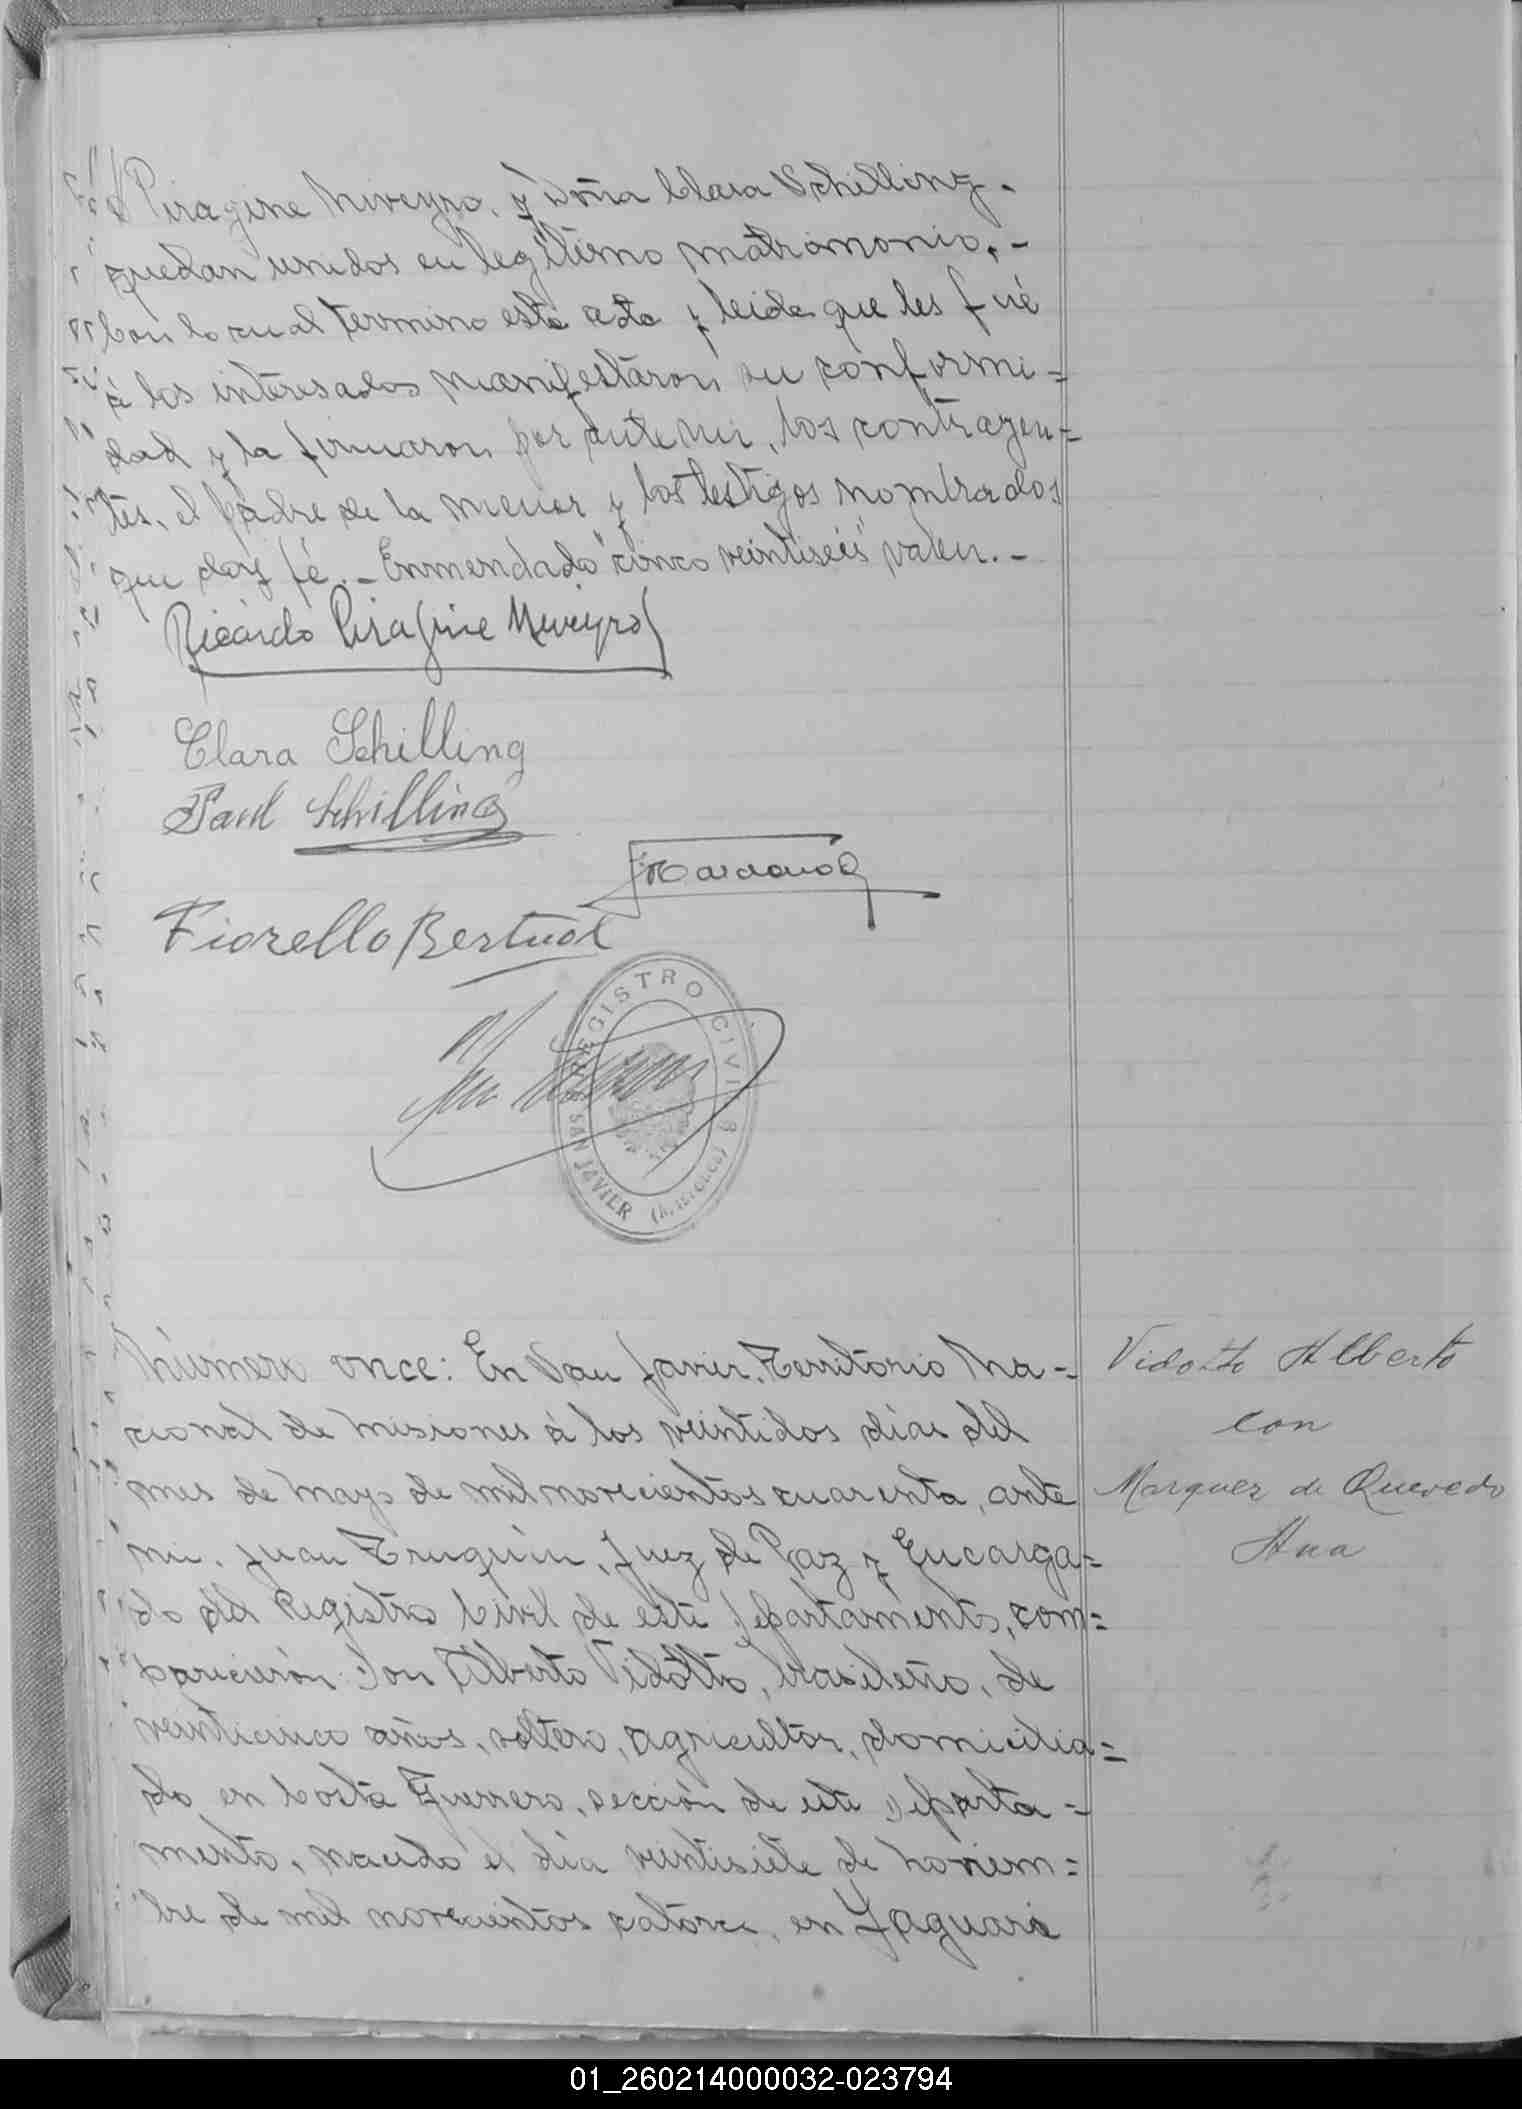 Piragine Niveyro, y Doña Clara Schilling.
quedan unidos en legítimo matrimonio. -
Con lo cual termino esta acta y leida que les fué
á los interesados manifestaron su conformi=
dad y la firmaron por ante mi, los contrayen=
tes, el padre de la menor y los testigos nombrados
que doy fé. - Enmendado "cinco veintiseis" valen. -
Ricardo Piragine Niveyro
Clara Schilling
Paul Schilling
Fiorello Bertuol
REGISTRO CIVIL
SAN JAVIER (MISIONES)
Número once: En San Javier, Territorio Na=
cional de Misiones á los veintidos días del
mes de Mayo de mil novecientos cuarenta, ante
mi, Juan Truquin, Juez de Paz y Encarga=
do del Registro Civil de este Departamento, com=
parecieron: Don Alberto Vidotto, brasileño, de
veinticinco años, soltero, agricultor, domicilia=
do en Costa Guerrero, sección de este Departa=
mento, nacido el día veintisiete de Noviem=
bre de mil novecientos catorce, en Jaguari
Vidotto Alberto
con
Marquez de Quevedo
Ana
01_260214000032-023794